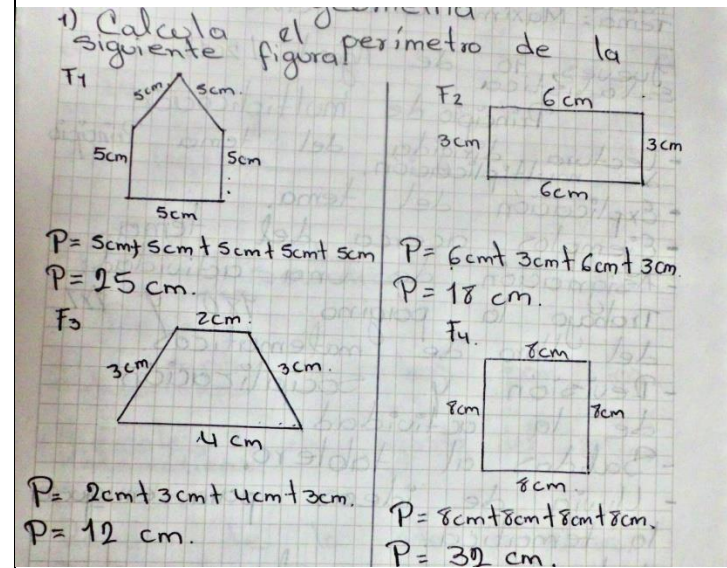 1) Calcula el perímetro de la
siguiente figura
F1
5cm
5cm.
5cm
5cm
5cm
P= 5cm+5cm+5cm+5cm+5cm
P= 25 cm.
F2
6cm
3cm
3cm
6cm
P= 6cm+3cm+6cm+3cm.
P= 18 cm.
F3
2cm.
3cm
3cm.
4 cm
P= 2cm+3cm+4cm+3cm.
P= 12 cm.
F4.
8cm
8cm
8cm
8cm.
P= 8cm+8cm+8cm+8cm.
P= 32 cm.